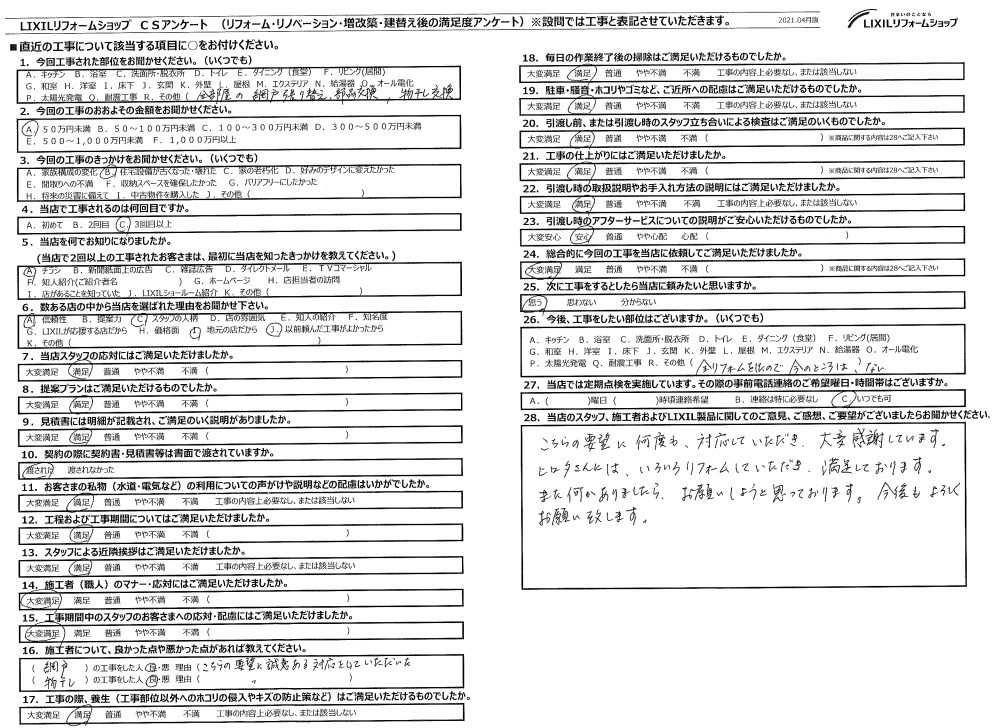 LIXILリフォームショップ　ＣＳアンケート　（リフォーム・リノベーション・増改築・建替え後の満足度アンケート）※設問では工事と表記させていただきます。
2021.04月版
住まいのことなら
LIXILリフォームショップ
■直近の工事について該当する項目に○をお付けください。
1．今回工事された部位をお聞かせください。（いくつでも）
A．キッチン　B．浴室　C．洗面所・脱衣所　D．トイレ　E．ダイニング（食堂）　F．リビング(居間)
G．和室　H．洋室　I．床下　J．玄関　K．外壁　L．屋根　M．エクステリア　N．給湯器　O．オール電化
P．太陽光発電　Q．耐震工事　R．その他（ 全部屋の網戸張り替え、部品交換、物干し交換
2．今回の工事のおおよその金額をお聞かせください。
A．５０万円未満　B．５０～１００万円未満　C．１００～３００万円未満　D．３００～５００万円未満
E．５００～1,０００万円未満　F．1,０００万円以上
3．今回の工事のきっかけをお聞かせください。（いくつでも）
A．家族構成の変化　B．住宅設備が古くなった・壊れた　C．家の老朽化　D．好みのデザインに変えたかった
E．間取りへの不満　F．収納スペースを確保したかった　G．バリアフリーにしたかった
H．将来の災害に備えて　I．中古物件を購入した　J．その他（　）
4．当店で工事されるのは何回目ですか。
A．初めて　B．2回目　C．3回目以上
5．当店を何でお知りになりましたか。
(当店で2回以上の工事されたお客さまは、最初に当店を知ったきっかけを教えてください。)
A．チラシ　B．新聞紙面上の広告　C．雑誌広告　D．ダイレクトメール　E．ＴＶコマーシャル
F．知人紹介(ご紹介者名　)　G．ホームページ　H．店担当者の訪問
I．店があることを知っていた　J．LIXILショールーム紹介　K．その他（　）
6．数ある店の中から当店を選ばれた理由をお聞かせ下さい。
A．信頼性　B．提案力　C．スタッフの人柄　D．店の雰囲気　E．知人の紹介　F．知名度
G．LIXILが応援する店だから　H．価格面　I．地元の店だから　J．以前頼んだ工事がよかったから
K．その他（　）
7．当店スタッフの応対にはご満足いただけましたか。
大変満足　満足　普通　やや不満　不満　（　）
8．提案プランはご満足いただけるものでしたか。
大変満足　満足　普通　やや不満　不満　（　）
9．見積書には明細が記載され、ご満足のいく説明がありましたか。
大変満足　満足　普通　やや不満　不満　（　）
10．契約の際に契約書・見積書等は書面で渡されていますか。
渡された　渡されなかった
11．お客さまの私物（水道・電気など）の利用についての声がけや説明などの配慮はいかがでしたか。
大変満足　満足　普通　やや不満　不満　工事の内容上必要なし、または該当しない
12．工程および工事期間についてはご満足いただけましたか。
大変満足　満足　普通　やや不満　不満　（　）
13．スタッフによる近隣挨拶はご満足いただけましたか。
大変満足　満足　普通　やや不満　不満　工事の内容上必要なし、または該当しない
14．施工者（職人）のマナー・応対にはご満足いただけましたか。
大変満足　満足　普通　やや不満　不満　（　）
15．工事期間中のスタッフのお客さまへの応対・配慮にはご満足いただけましたか。
大変満足　満足　普通　やや不満　不満　（　）
16．施工者について、良かった点や悪かった点があれば教えてください。
（ 網戸 ）の工事をした人 良・悪　理由（ こちらの要望に誠意ある対応をしていただいた
（ 物干し ）の工事をした人 良・悪　理由（ 〃 ）
17．工事の際、養生（工事部位以外へのホコリの侵入やキズの防止策など）はご満足いただけるものでしたか。
大変満足　満足　普通　やや不満　不満　工事の内容上必要なし、または該当しない
18．毎日の作業終了後の掃除はご満足いただけるものでしたか。
大変満足　満足　普通　やや不満　不満　工事の内容上必要なし、または該当しない
19．駐車・騒音・ホコリやゴミなど、ご近所への配慮はご満足いただけるものでしたか。
大変満足　満足　普通　やや不満　不満　工事の内容上必要なし、または該当しない
20．引渡し前、または引渡し時のスタッフ立ち合いによる検査はご満足のいくものでしたか。
大変満足　満足　普通　やや不満　不満　（　）※商品に関する内容は28へご記入下さい
21．工事の仕上がりにはご満足いただけましたか。
大変満足　満足　普通　やや不満　不満　（　）※商品に関する内容は28へご記入下さい
22．引渡し時の取扱説明やお手入れ方法の説明にはご満足いただけましたか。
大変満足　満足　普通　やや不満　不満　工事の内容上必要なし、または該当しない
23．引渡し時のアフターサービスについての説明がご安心いただけるものでしたか。
大変安心　安心　普通　やや心配　心配　（　）
24．総合的に今回の工事を当店に依頼してご満足いただけましたか。
大変満足　満足　普通　やや不満　不満　（　）※商品に関する内容は28へご記入下さい
25．次に工事をするとしたら当店に頼みたいと思いますか。
思う　思わない　分からない
26．今後、工事をしたい部位はございますか。（いくつでも）
A．キッチン　B．浴室　C．洗面所・脱衣所　D．トイレ　E．ダイニング（食堂）　F．リビング(居間)
G．和室　H．洋室　I．床下　J．玄関　K．外壁　L．屋根　M．エクステリア　N．給湯器　O．オール電化
P．太陽光発電　Q．耐震工事　R．その他（ 全リフォームをしたので今のところは、ない
27．当店では定期点検を実施しています。その際の事前電話連絡のご希望曜日・時間帯はございますか。
A．（　）曜日（　）時頃連絡希望　B．連絡は特に必要なし　C．いつでも可
28．当店のスタッフ、施工者およびLIXIL製品に関してのご意見、ご感想、ご要望がございましたらお聞かせください。
こちらの要望に何度も、対応していただき、大変感謝しています。
ヒロタさんには、いろいろリフォームしていただき、満足しております。
また何かありましたら、お願いしようと思っております。今後もよろしく
お願い致します。